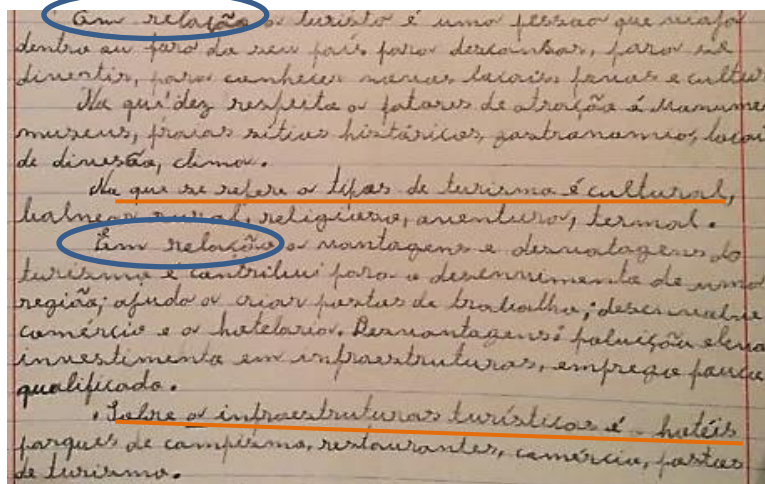 Em relação o turisto é umo pessao que viaja
dentro ou foro do seu país paro descansar, paro se
divertir, paro conhecer novos locais, povos e cultur
No qui dez respeito a fatores de atração é Monume
museus, praias sítios históricos, gastronomio, locai
de diversão, clima.
No que se refere a tipos de turismo é cultural,
balnear rural, religioso, aventuro, termal.
Em relação a vantagens e desvatagens do
turismo é contribui paro o desenvimento de umo
região; ajudo a criar postos de trabalho; desenvolve
comércio e a hotelario. Desvantagens: poluição eleva
investimento em infraestruturas, emprego pouco
qualificado.
. Sobre a infraestruturas turísticos é - hotéis
parques de campismo, restaurantes, comércio, postos
de turismo.